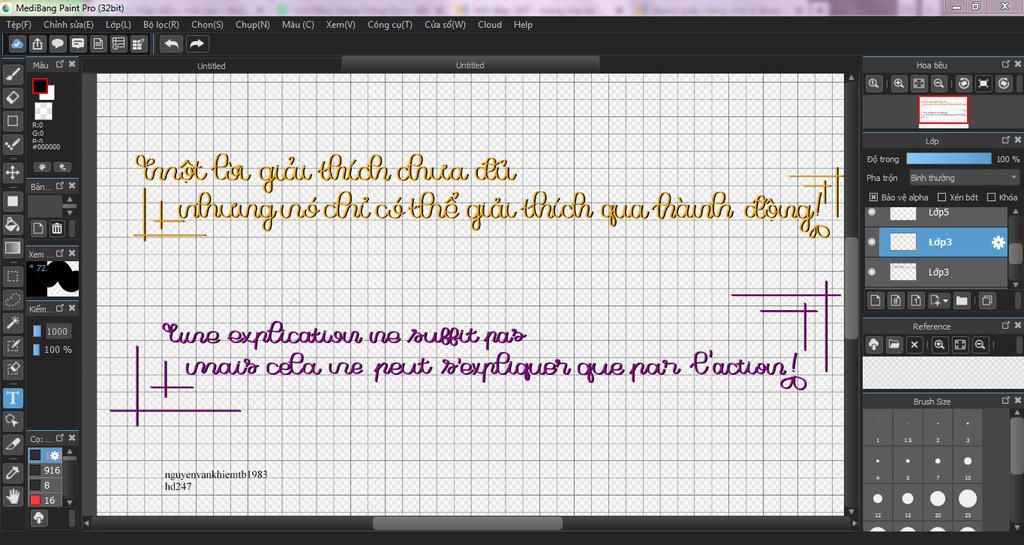 MediBang Paint Pro (32bit)
Tệp(F) Chỉnh sửa(E) Lớp(L) Bộ lọc(R) Chọn(S) Chụp(N) Màu (C) Xem(V) Công cụ(T) Cửa sổ(W) Cloud Help
Màu Untitled Untitled Hoa tiêu
R:0
G:0
B:0
#000000
Lớp
Độ trong 100 %
Pha trộn Bình thường
Bảo vệ alpha Xén bớt Khóa
Lớp5
Lớp3
Lớp3
Bản...
Xem ...
* 72
Kiểm...
1000
100 %
một lời giải thích chưa đủ
nhưng nó chỉ có thể giải thích qua hành động!
une explication ne suffit pas
mais cela ne peut s'expliquer que par l'action!
nguyenvankhiemtb1983
hd247
Reference
Brush Size
1 1.5 2 3
4 5 7 10
12 15 20 25
Cọ: ...
916
8
16